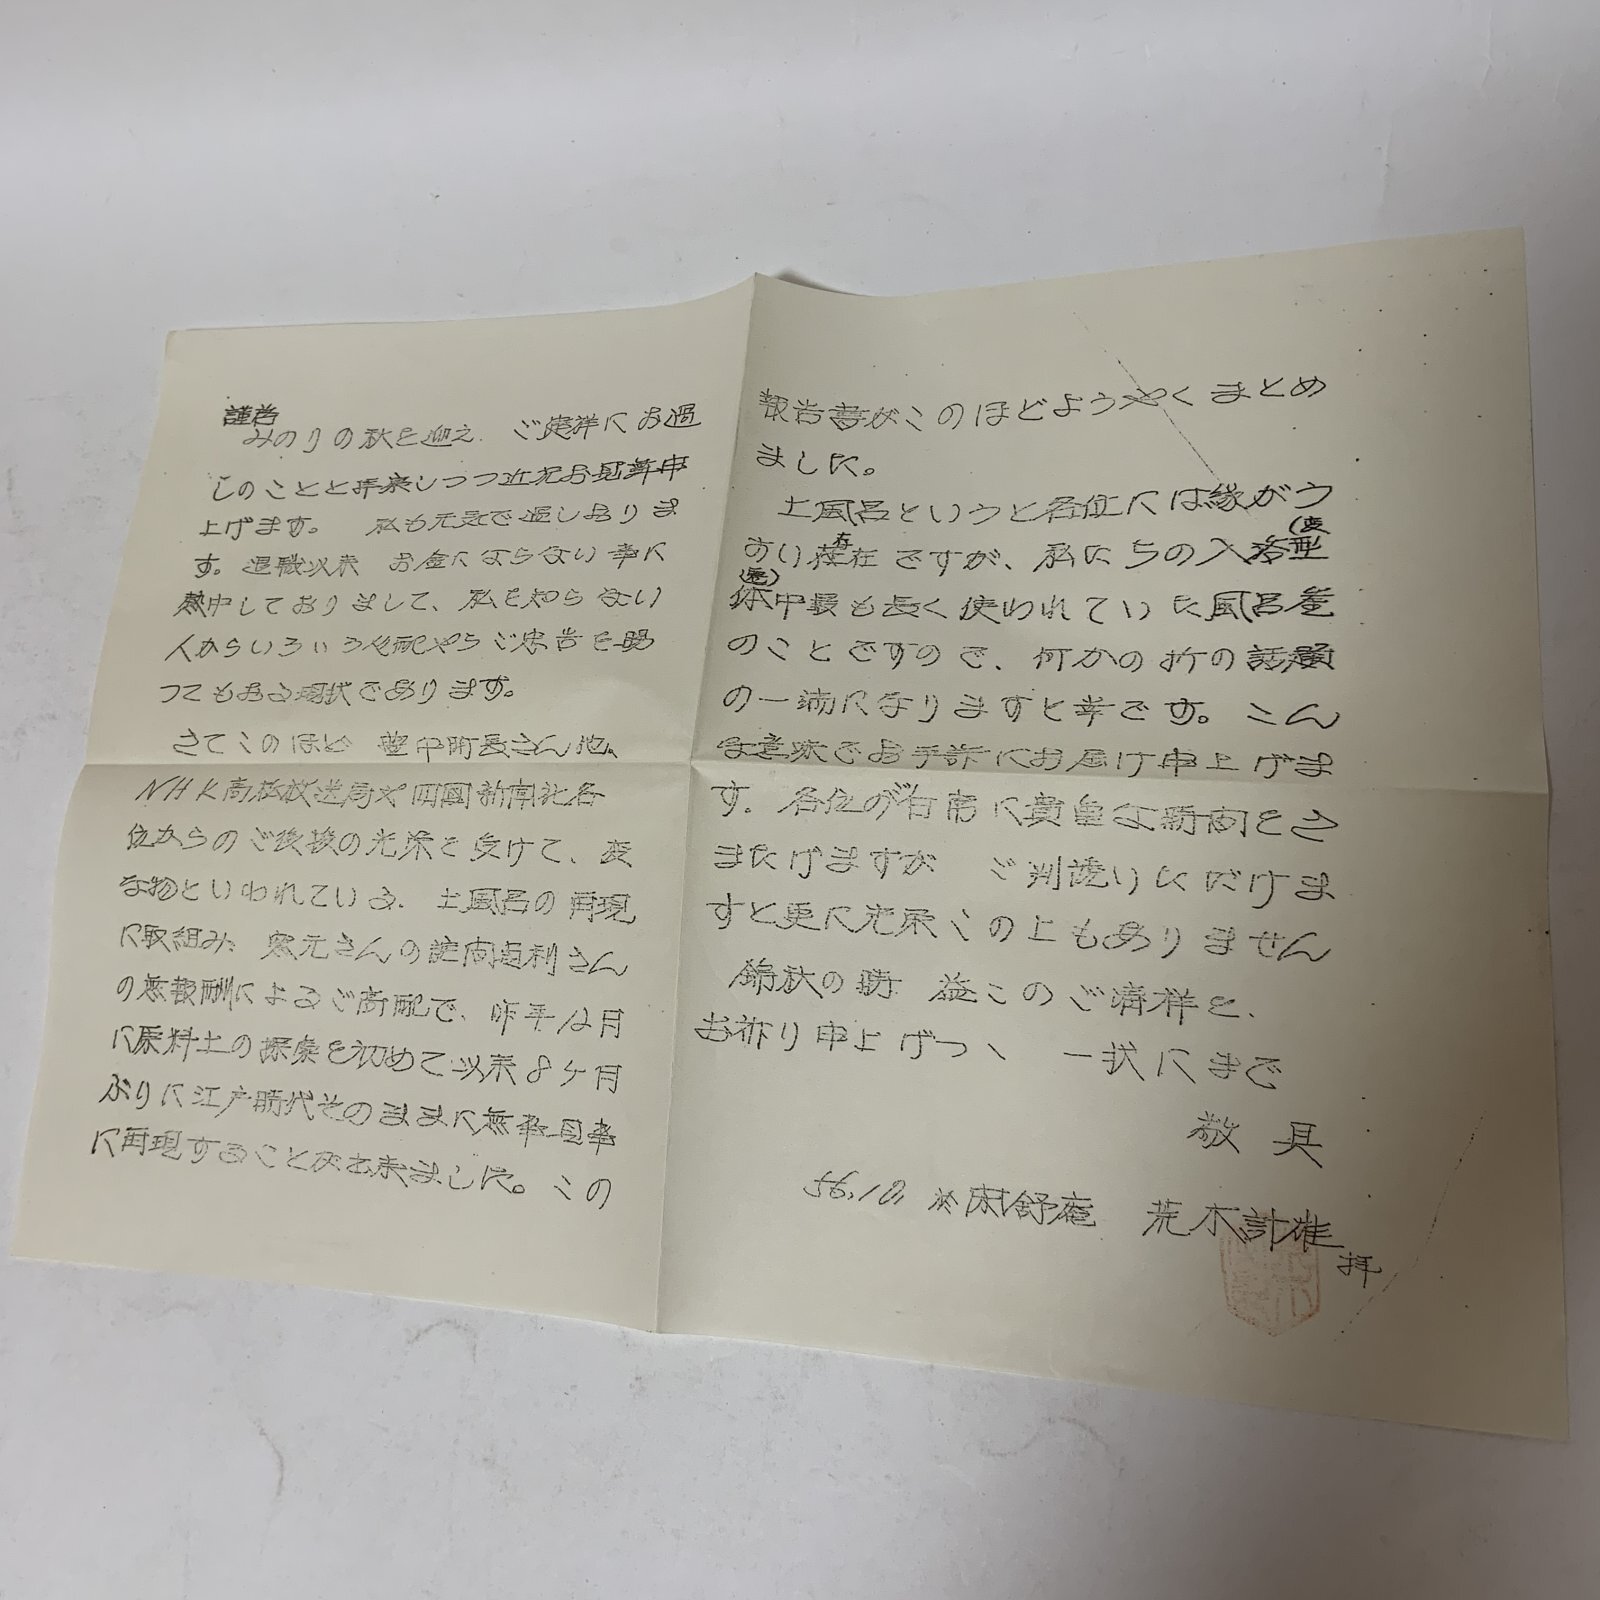 謹啓
みのりの秋を迎え、ご健祥にお過
しのことと拝察しつつ近況お見舞申
上げます。 私も元気で過しおりま
す。退職以来 お金にならない事に
熱中しておりまして、私を知らない
人からいろいろ心配やらご忠告を賜
つてもおる現状であります。
さてこのほど 豊中町長さん他、
NHK高松放送局や四國新聞社各
位からのご後援の光栄を受けて、変
な物といわれている、土風呂の再現
に取組み、窯元さんの詫間 利さん
の無報酬によるご高配で、昨年12月
に原料土の探索を初めて以来8ヶ月
ぶりに江戸時代そのままに無事見事
に再現することが出来ました。この
報告書がこのほどようやくまとめ
ました。
土風呂というと各位には縁がう
すい存在ですが、私たちの入浴型(変
体(遷)中最も長く使われていた風呂釜
のことですので、何かの折の話題
の一端になりますと幸です。こん
な意味でお手許にお届け申上げま
す。各位のご台席に貴重な時間をさ
またげますが ご判読いただけま
すと更に光栄この上もありません
錦秋の時 益々のご清祥を、
お祈り申上げつゝ 一状にまで
敬具
56.10 於 閑舒庵 荒木計雄
拝